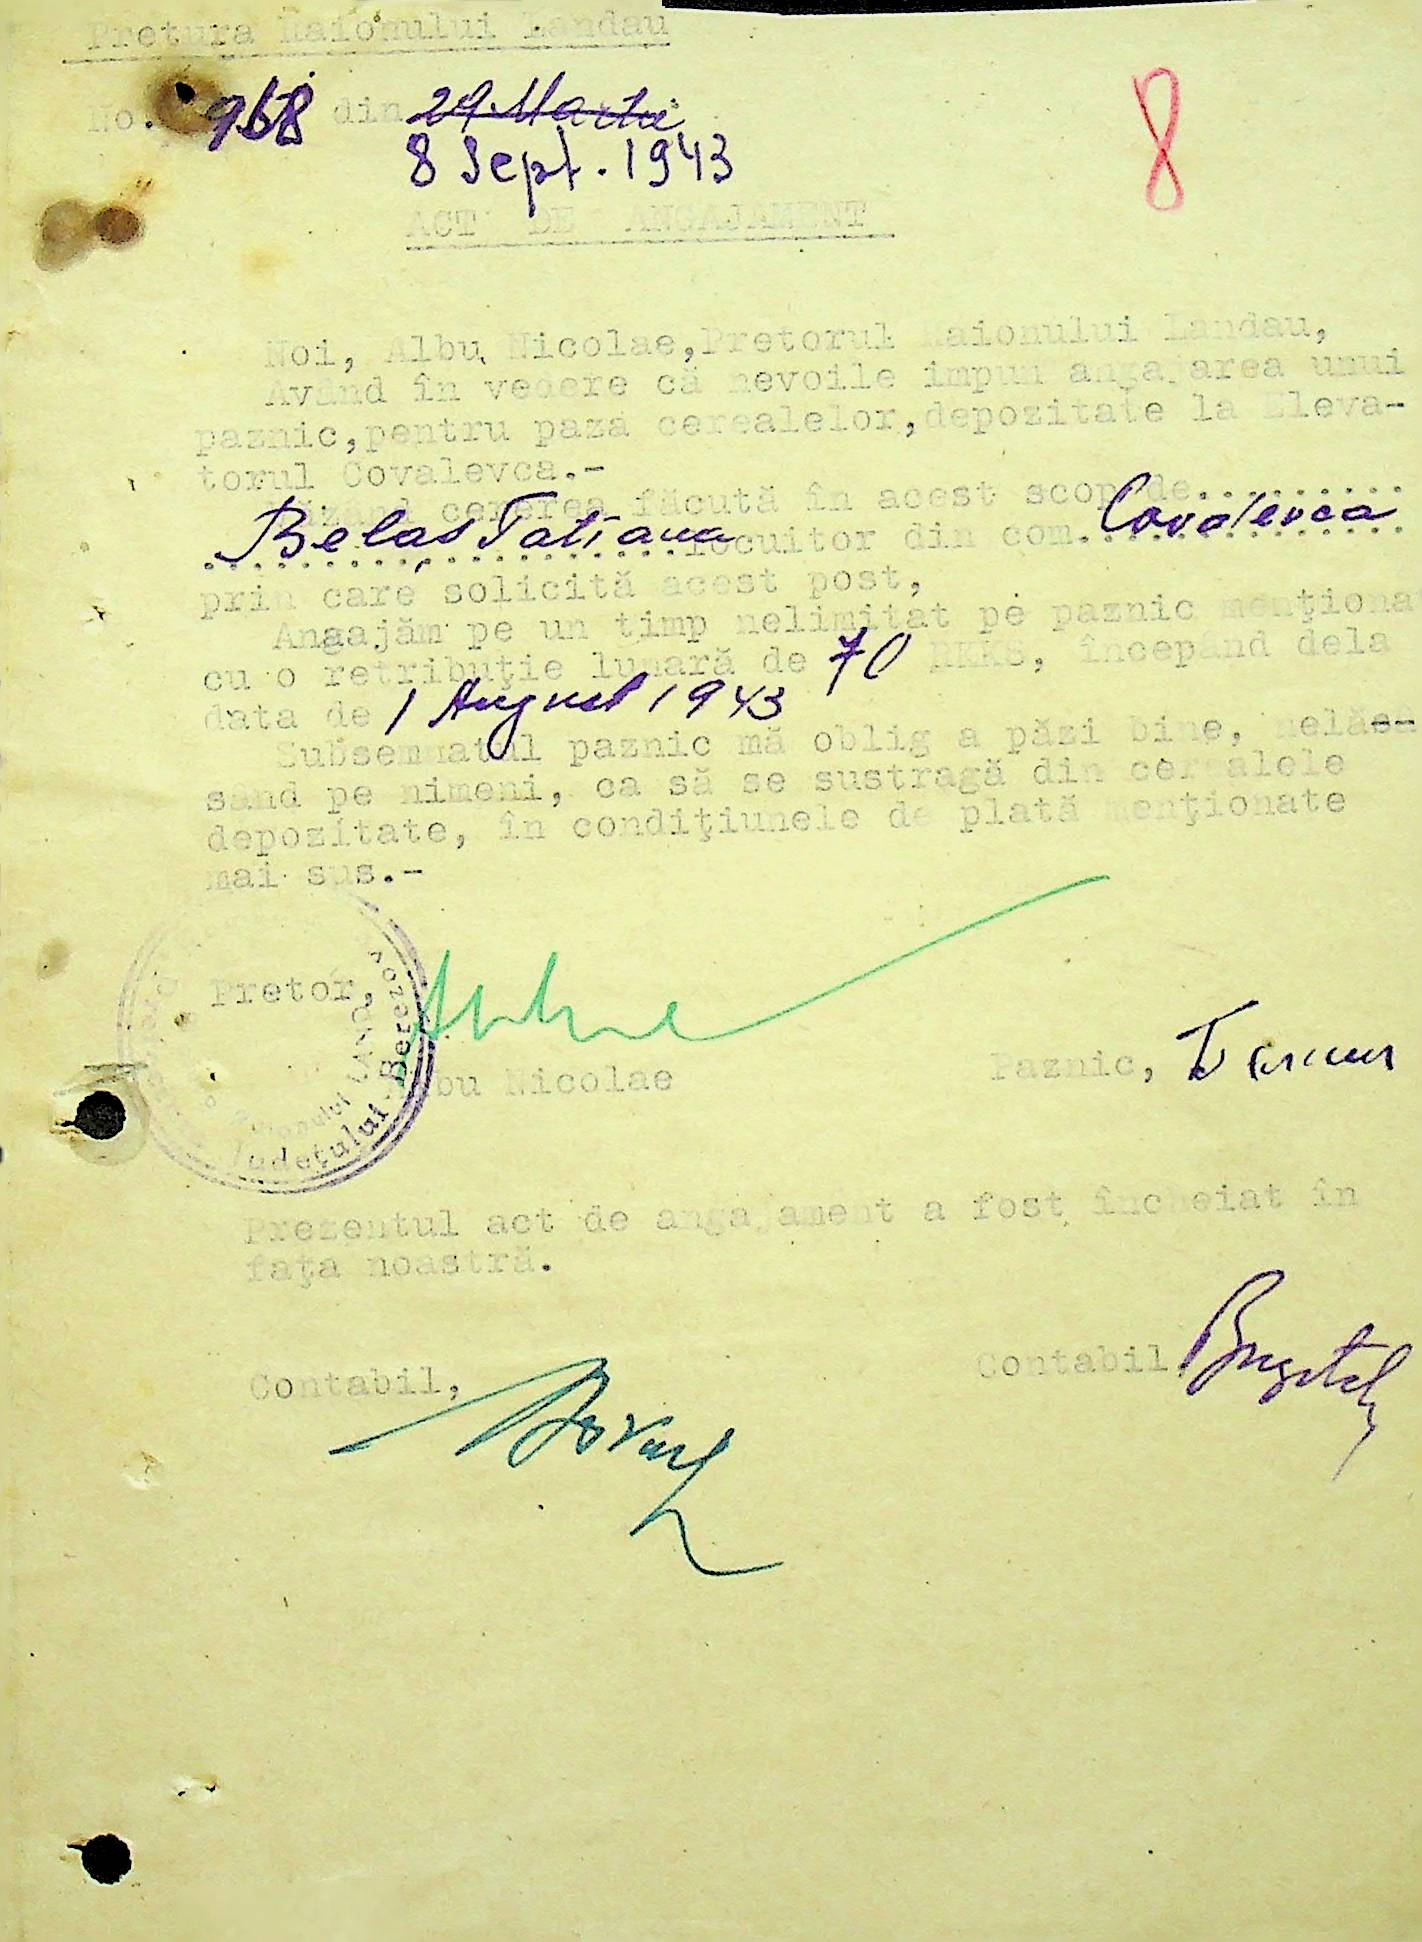 Pretura Raionului Landau
8
No. 968 din 29 Martie
8 Sept. 1943
ACT DE ANGAJAMENT
Noi, Albu Nicolae, Pretorul Raionului Landau,
Având în vedere că nevoile impun angajarea unui
paznic, pentru paza cerealelor, depozitate la Eleva-
torul Covalevca.-
Văzând cererea făcută în acest scop de.........
Belas Tatiana locuitor din com. Covalevca
prin care solicită acest post,
Angajăm pe un timp nelimitat pe paznic menționa
cu o retribuție lunară de 70 RKKS, începând dela
data de 1 August 1943
Subsemnatul paznic mă oblig a păzi bine, nelăsâ-
sând pe nimeni, ca să se sustragă din cerealele
depozitate, în condițiunele de plată menționate
mai sus.-
Pretor,
Albu Nicolae
Paznic,
Raionului LANDAU
Județului Berezov
Prezentul act de angajament a fost încheiat în
fața noastră.
Contabil,
Contabil,